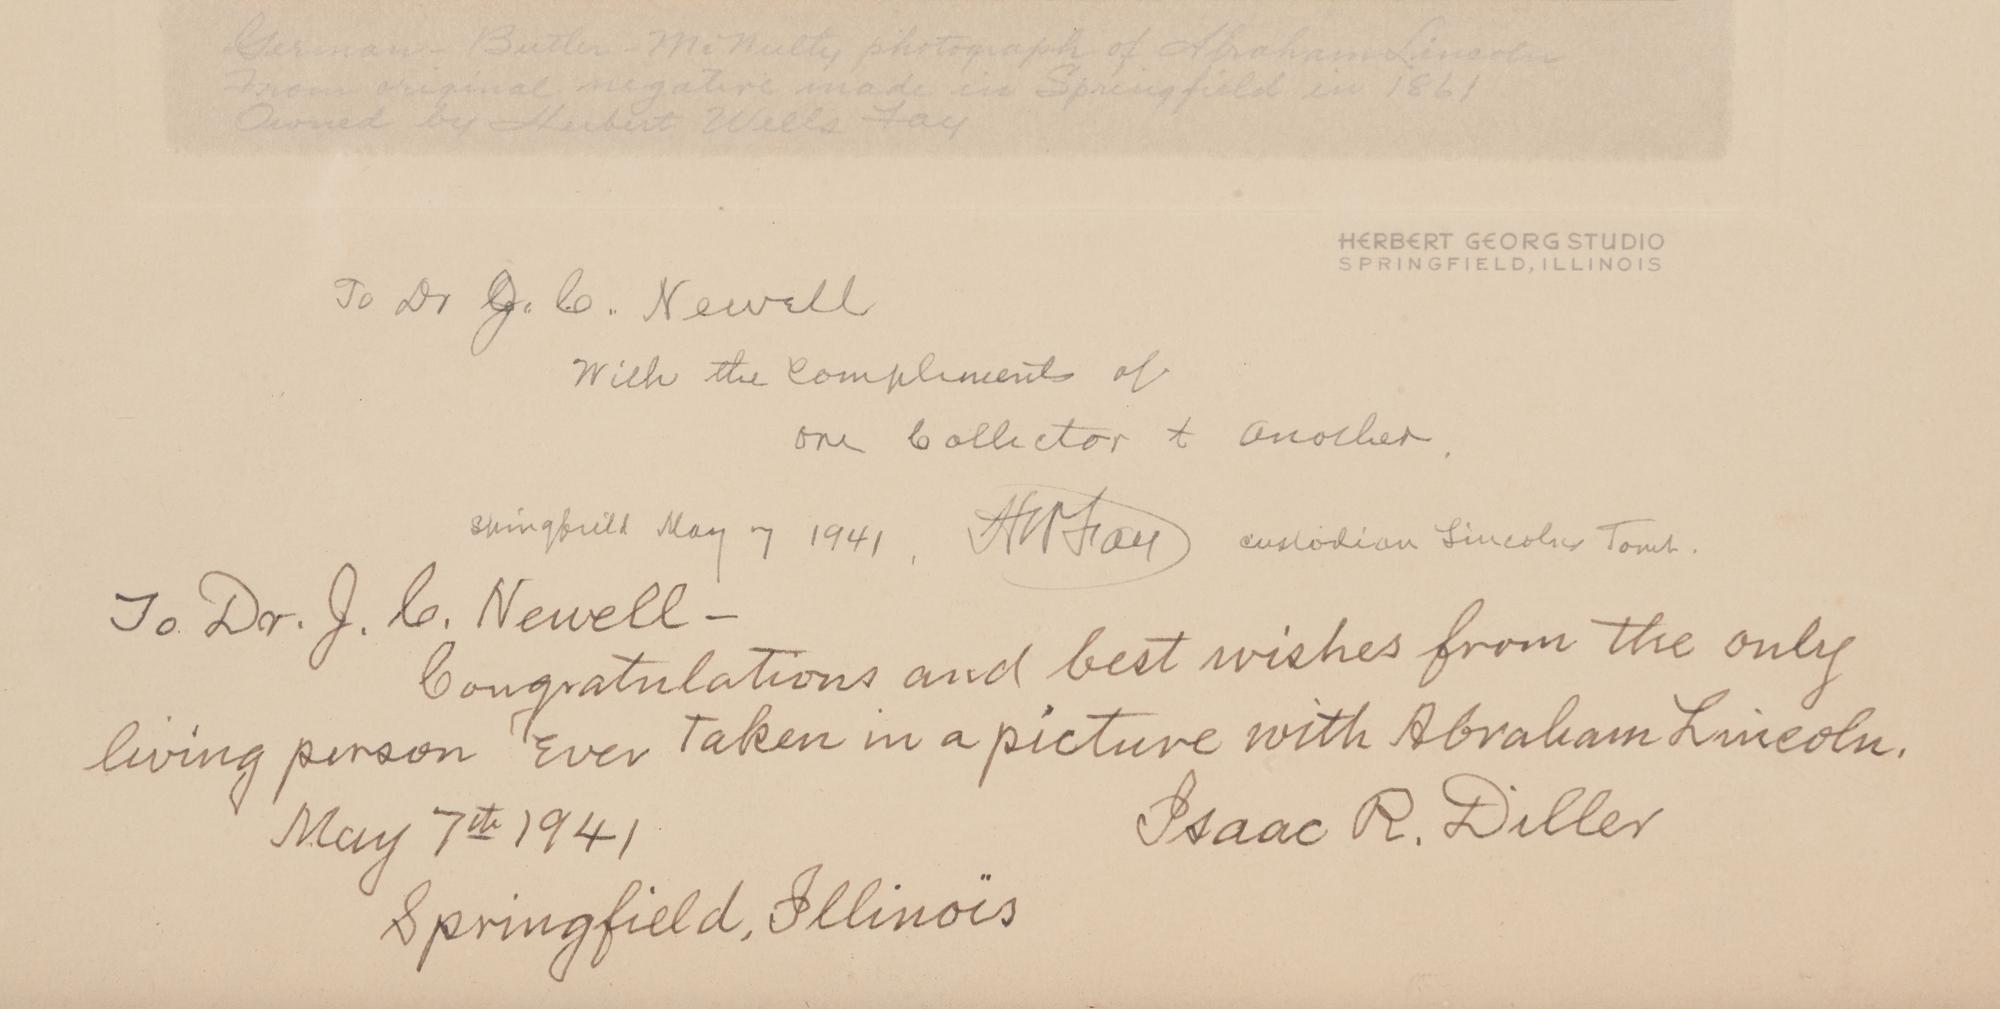 German - Butler - McNulty photograph of Abraham Lincoln
From original negative made in Springfield in 1861
Owned by Herbert Wells Fay
HERBERT GEORG STUDIO
SPRINGFIELD, ILLINOIS
To Dr J. C. Newell
With the compliments of
one Collector t another.
Springfield May 7 1941, HW Fay custodian Lincolns Tomb.
To Dr. J. C. Newell —
Congratulations and best wishes from the only
living person Ever Taken in a picture with Abraham Lincoln.
May 7th 1941
Isaac R. Diller
Springfield, Illinois